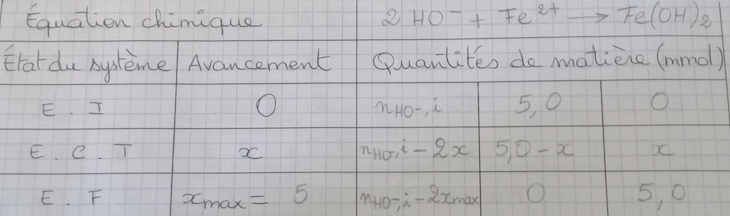 Équation chimique 2 HO⁻ + Fe²⁺ → Fe(OH)₂
État du système Avancement Quantités de matière (mmol)
E. I 0 nHO⁻,i 5,0 0
E. C. T x nHO⁻,i − 2x 5,0 − x x
E. F xmax = 5 nHO⁻,i − 2xmax 0 5,0